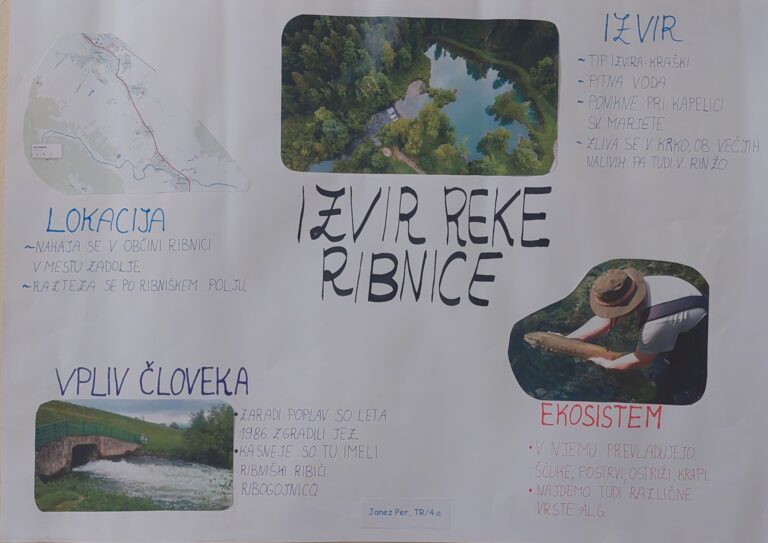 IZVIR REKE
RIBNICE
LOKACIJA
~NAHAJA SE V OBČINI RIBNICI
V MESTU ZADOLJE
~RAZTEZA SE PO RIBNIŠKEM POLJU
IZVIR
~TIP IZVIRA: KRAŠKI
~PITNA VODA
~PONIKNE PRI KAPELICI
SV. MARJETE
~ZLIVA SE V KRKO, OB VEČJIH
NALIVIH PA TUDI V RINŽO
VPLIV ČLOVEKA
•ZARADI POPLAV SO LETA
1986 ZGRADILI JEZ.
•KASNEJE SO TU IMELI
RIBNIŠKI RIBIČI
RIBOGOJNICO
EKOSISTEM
•V NJEMU PREVLADUJEJO
ŠČUKE, POSTRVI, OSTRIŽI, KRAPI
•NAJDEMO TUDI RAZLIČNE
VRSTE ALG
Janez Per, TR/4.a